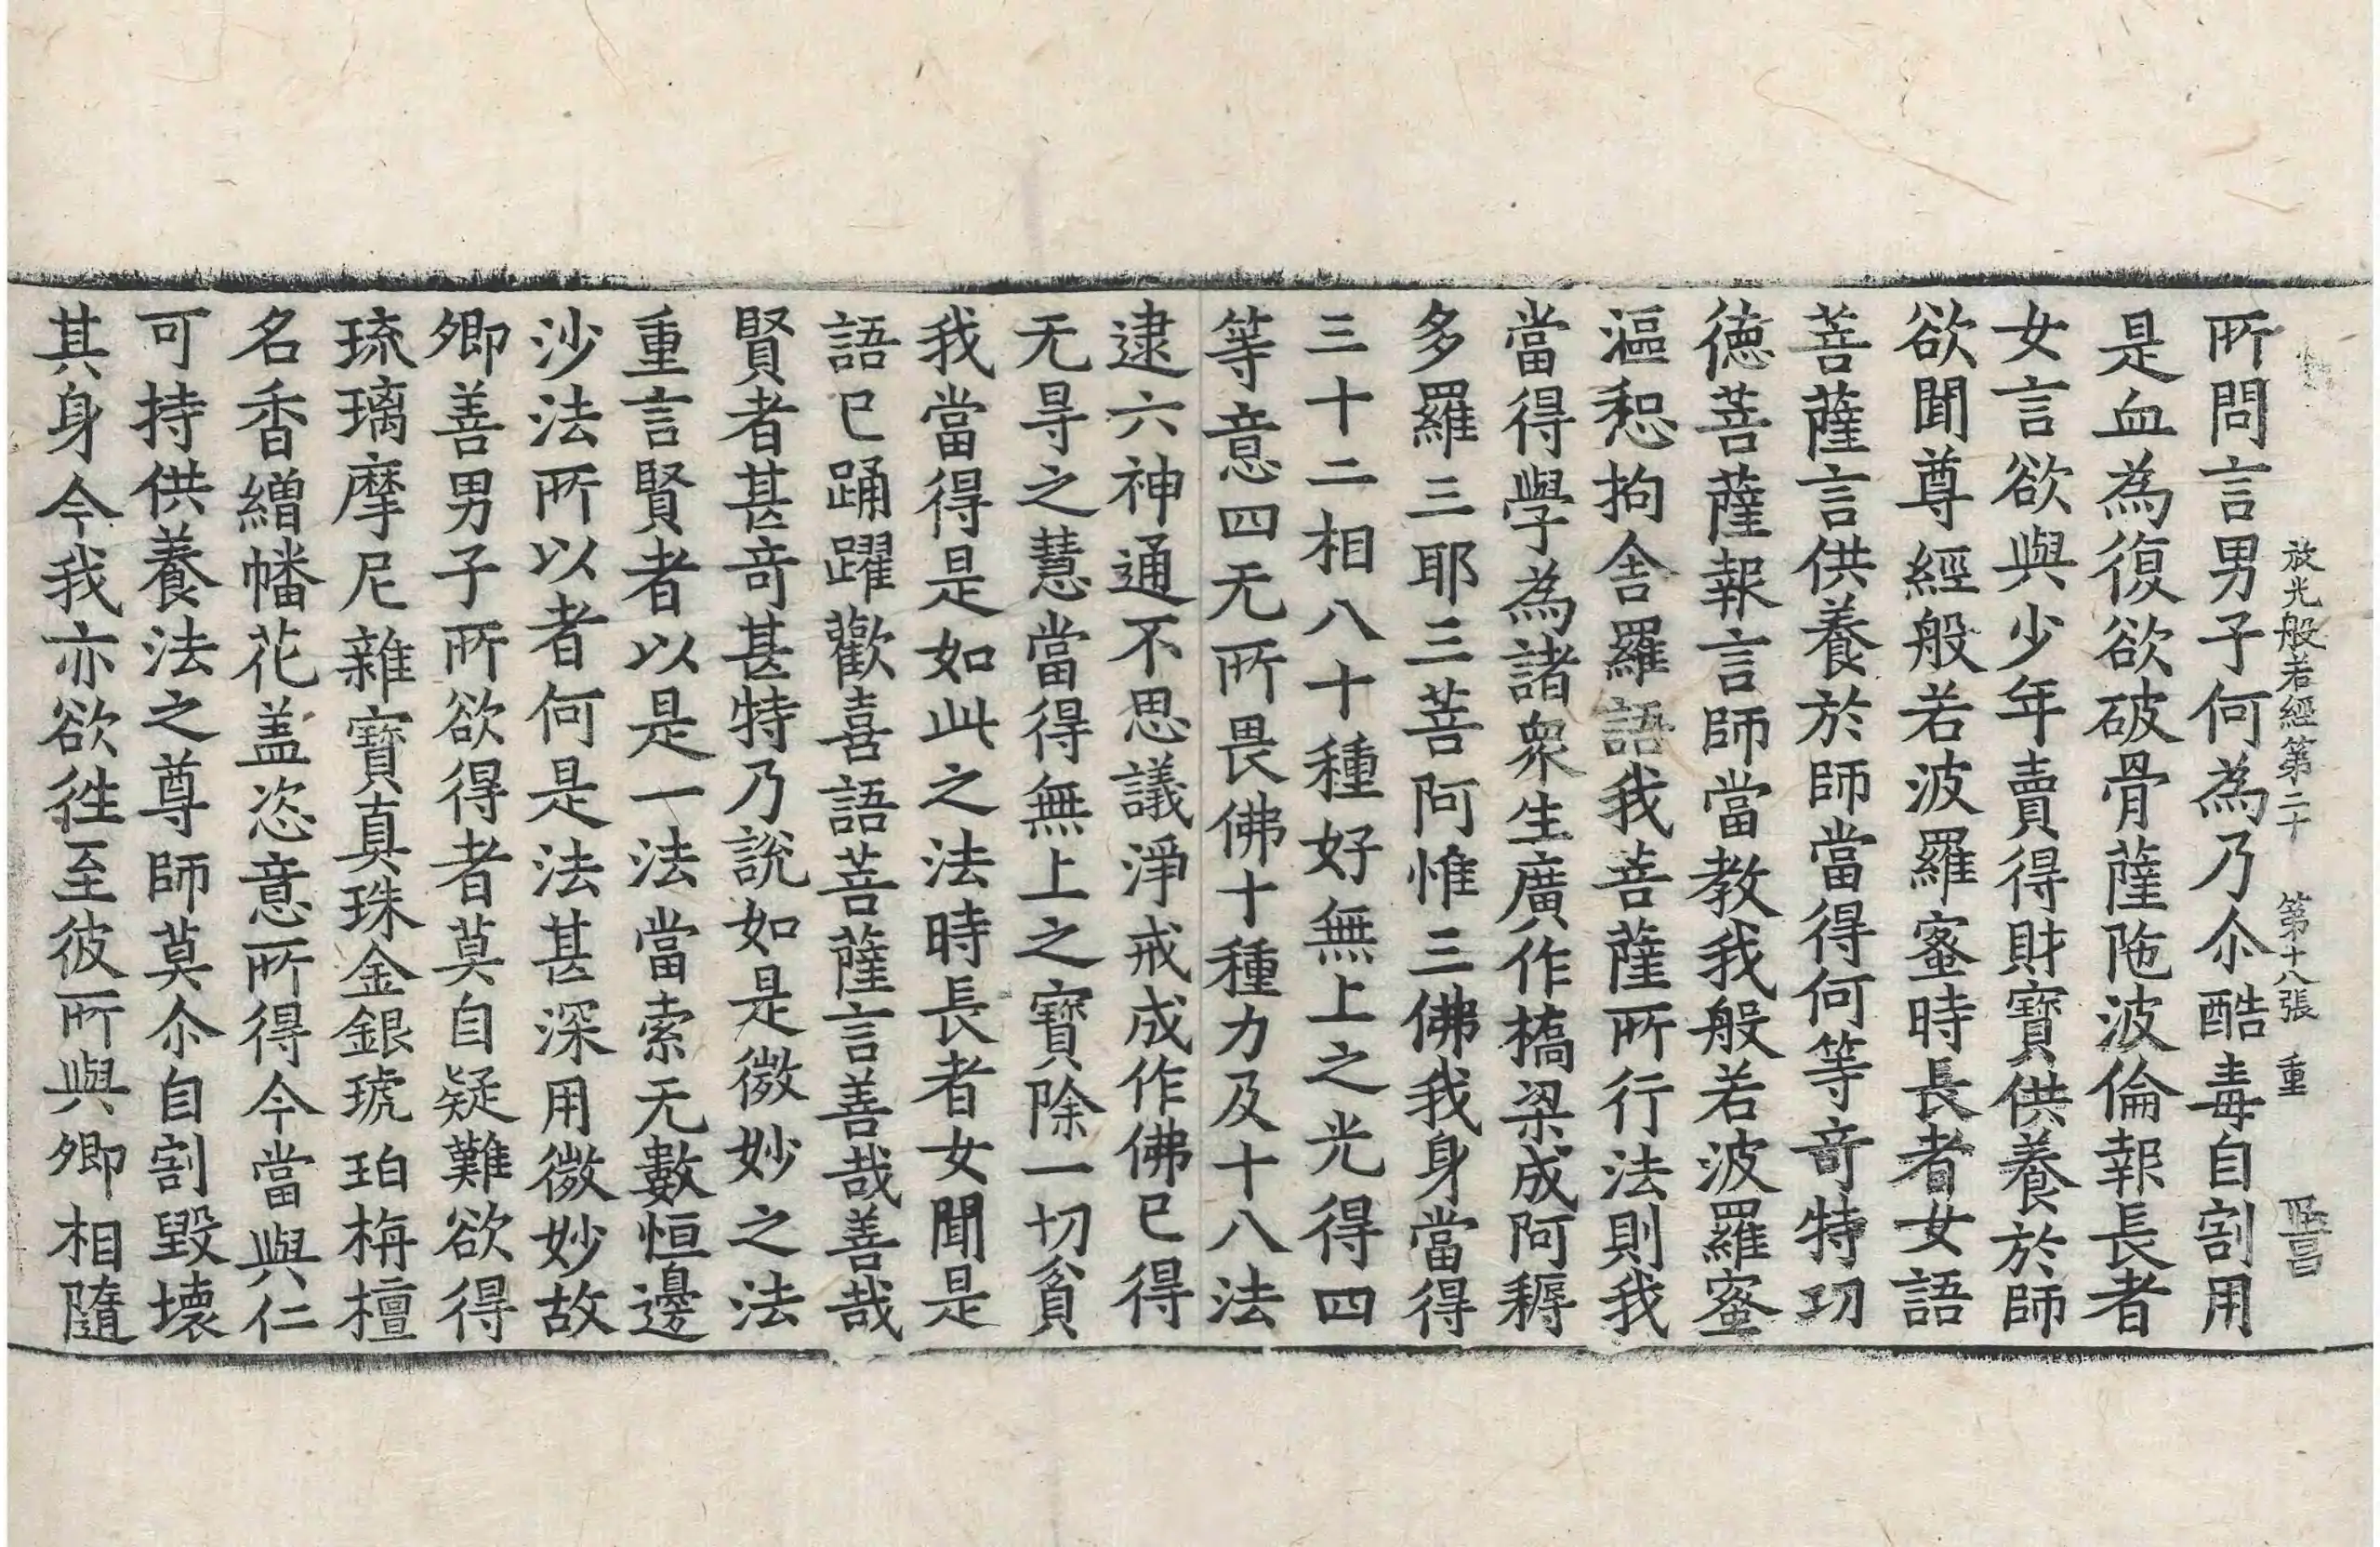 放光般若經第二十 第十八張 重
所問言男子何為乃尒酷毒自割用
是血為復欲破骨薩陁波倫報長者
女言欲與少年賣得財寶供養於師
欲聞尊經般若波羅蜜時長者女語
菩薩言供養於師當得何等竒特功
德菩薩報言師當教我般若波羅蜜
漚惒拘舍羅語我菩薩所行法則我
當得學為諸衆生廣作橋梁成阿耨
多羅三耶三菩阿惟三佛我身當得
三十二相八十種好無上之光得四
等意四无所畏佛十種力及十八法
逮六神通不思議淨戒成作佛已得
无㝵之慧當得無上之寶除一切貧
我當得是如此之法時長者女聞是
語已踊躍歡喜語菩薩言善哉善哉
賢者甚竒甚特乃說如是微妙之法
重言賢者以是一法當索无數恒邊
沙法所以者何是法甚深用微妙故
卿善男子所欲得者莫自疑難欲得
琉璃摩尼雜寶真珠金銀琥珀栴檀
名香繒幡花盖恣意所得今當與仁
可持供養法之尊師莫尒自割毀壞
其身今我亦欲徃至彼所與卿相隨